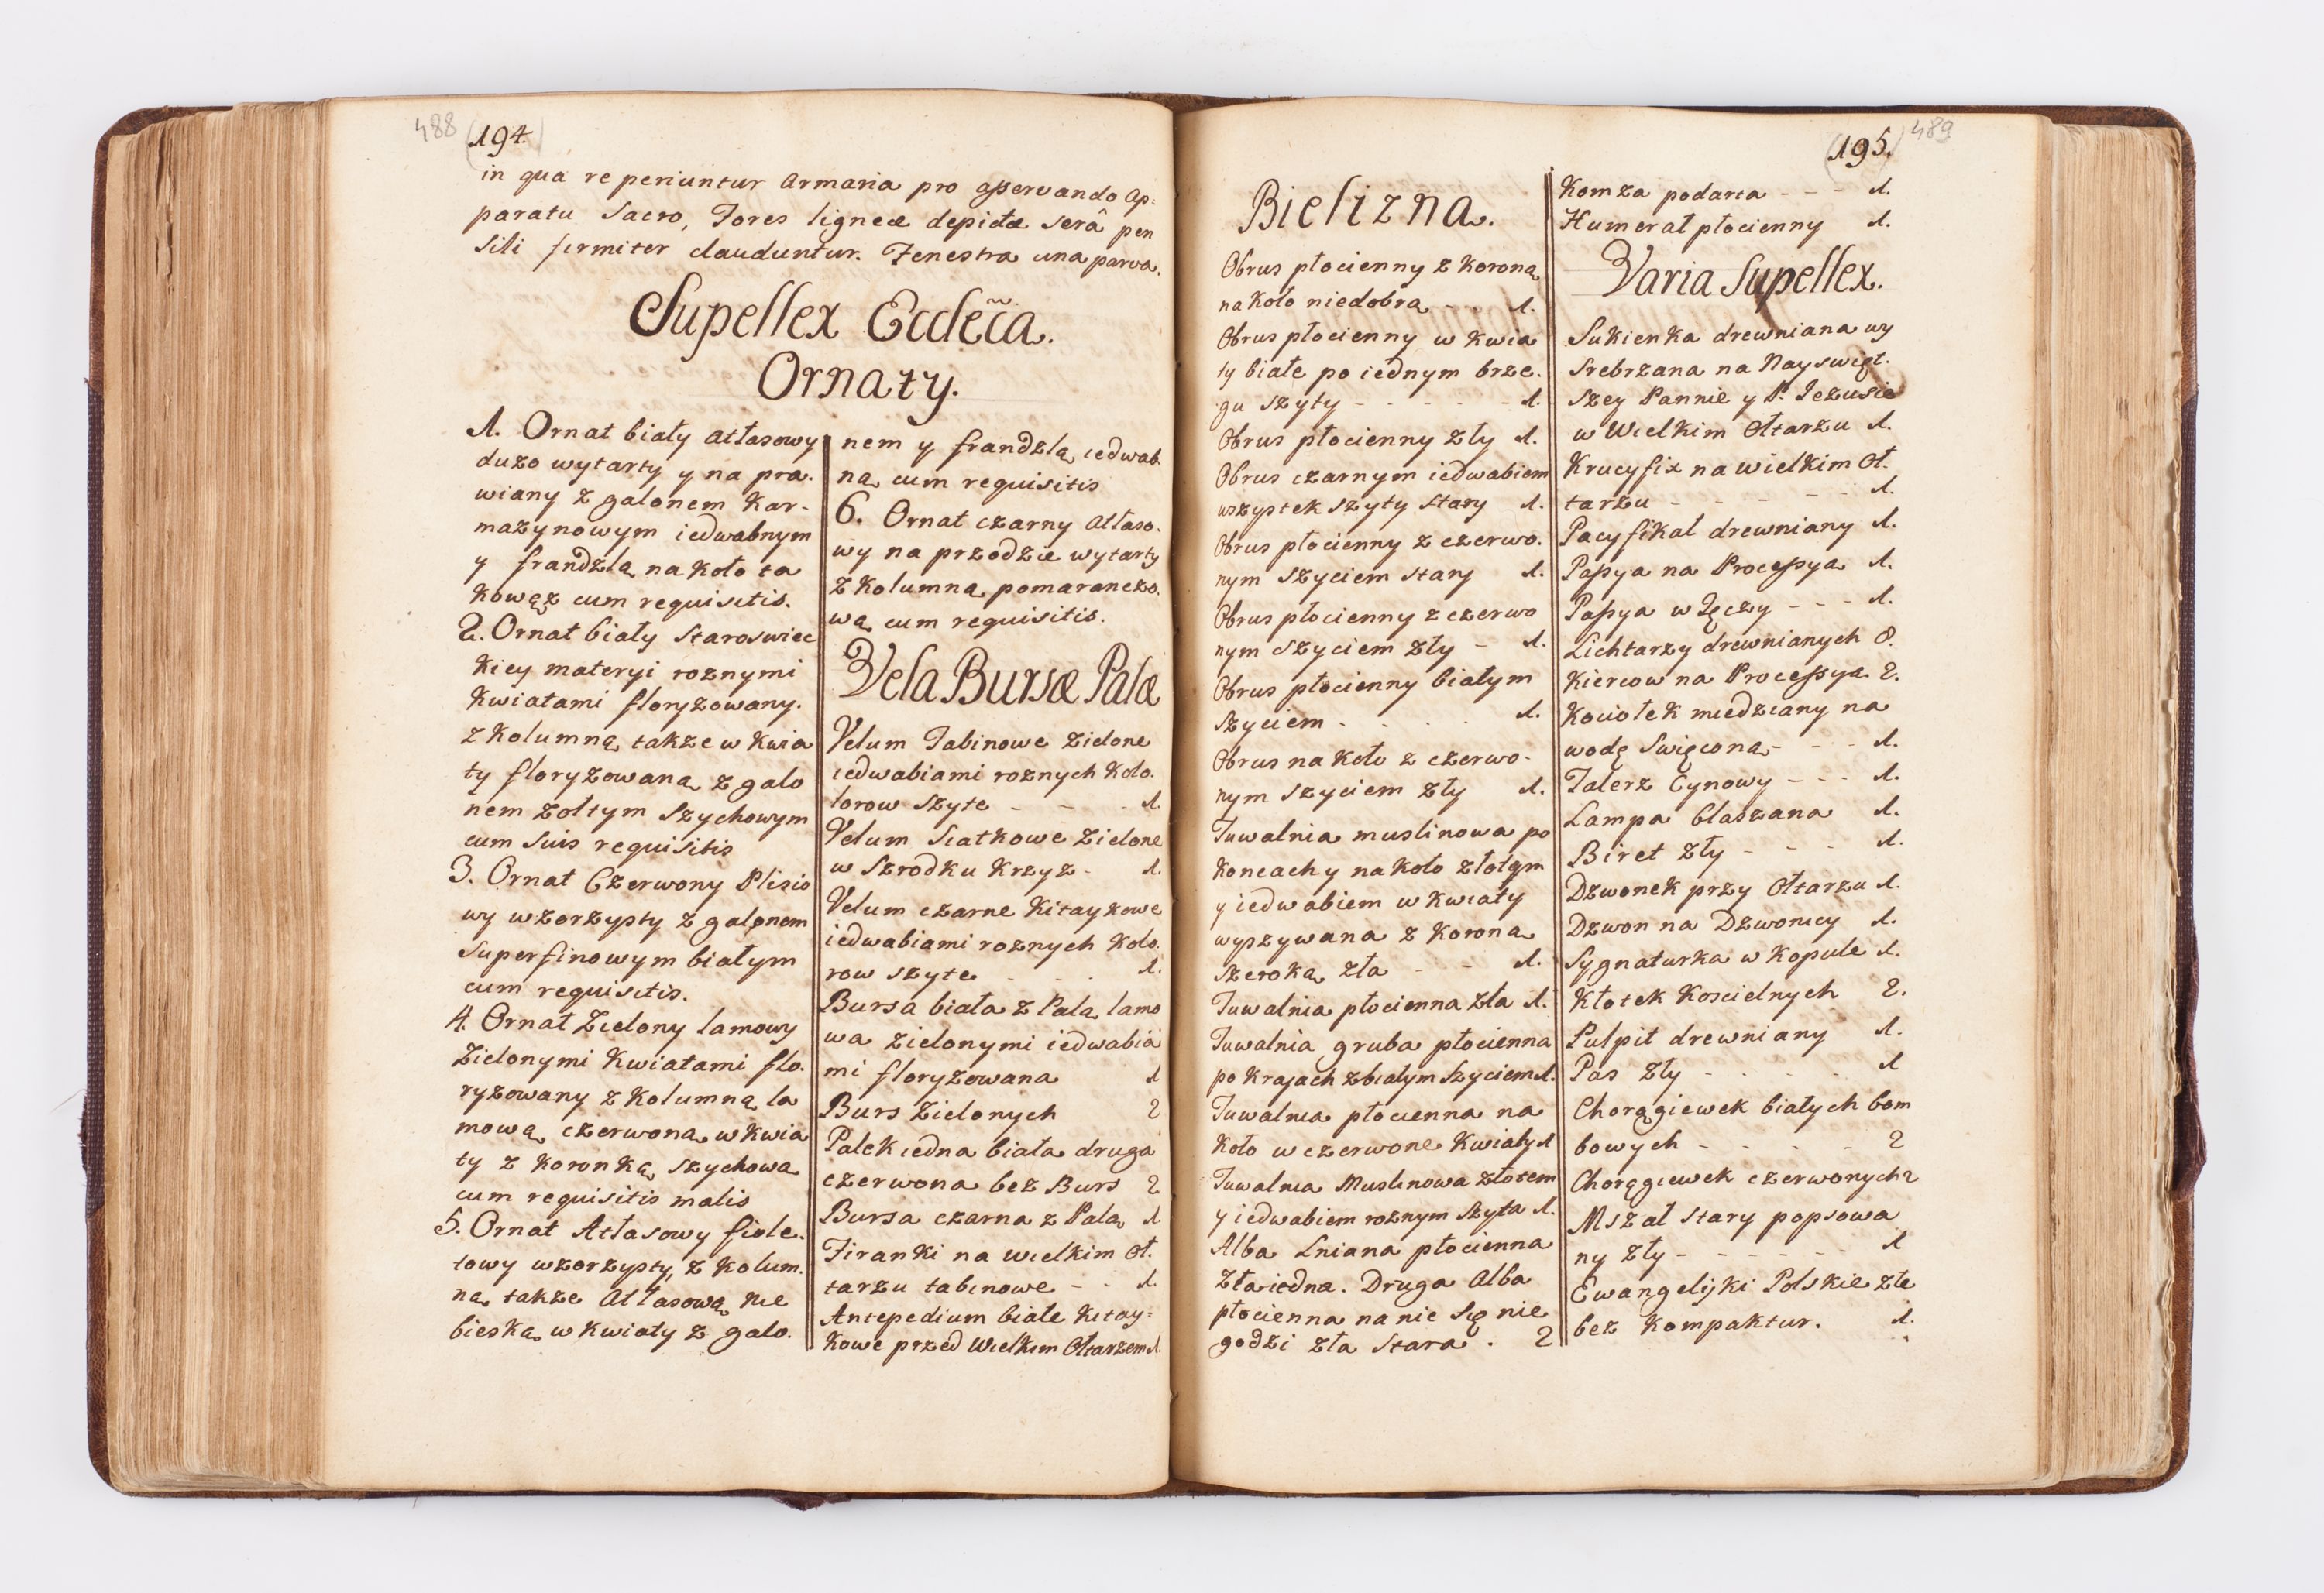 488 (194.)
in qua reperiuntur Armaria pro asservando Ap=
paratu Sacro, Fores ligneæ depictæ serâ pen
sili firmiter clauduntur. Fenestra una parva.
Supellex Eccleĉa.
Ornaty.
1. Ornat biały Atłasowy
duzo wytarty y na pra.
wiany z galonem Kar-
mazynowym iedwabnym
y frandzlą na Koło ta
Kowąz cum requisitis.
2. Ornat biały Staroswiec
Kiey materyi roznymi
Kwiatami floryzowany.
z Kolumną takze w Kwia
ty floryzowaną z galo
nem zołtym Szychowym
cum suis requisitis
3. Ornat Czerwony Plisio
wy wzorzysty z galonem
Superfinowym białym
cum requisitis.
4. Ornat Zielony lamowy
Zielonymi Kwiatami flo.
ryzowany z Kolumną la
mową czerwoną w Kwia
ty z Koronką szychową
cum requisitis malis
5. Ornat Atłasowy fiole.
towy wzorzysty, z Kolum.
ną takze Atłasową nie
bieską w Kwiaty z galo.
nem y frandzlą iedwab
ną cum requisitis
6. Ornat czarny Atłaso.
wy na przodzie wytarty
z Kolumną pomaranczo.
wą cum requisitis.
Vela Bursæ Palæ
Velum Tabinowe Zielone
iedwabiami roznych Kolo.
lorow Szyte - - - 1.
Velum Siatkowe Zielone
w Szrodku Krzyz - 1.
Velum czarne Kitaykowe
iedwabiami roznych Kolo.
row szyte - - - 1.
Bursa biała z Palą lamo
wa zielonymi iedwabia
mi floryzowana 1
Burs Zielonych 2
Palek iedna biała druga
czerwona bez Burs 2
Bursa czarna z Palą 1
Firanki na wielkim Oł.
tarzu tabinowe - - 1.
Antepedium białe Kitay=
Kowe przed Wielkim Ołtarzem 1.
(195.) 489
Bielizna.
Obrus płocienny z Koroną
na Koło niedobrą - - 1.
Obrus płocienny w Kwia
ty białe po iednym brze.
gu szyty - - - - - 1.
Obrus płocienny zły 1.
Obrus czarnym iedwabiem
wszystek szyty stary 1.
Obrus płocienny z czerwo.
nym szyciem stary 1.
Obrus płocienny z czerwo
nym szyciem zły - 1.
Obrus płocienny białym
szyciem - - - - 1.
Obrus na Koło z czerwo-
nym szyciem zły 1.
Tuwalnia muslinowa po
Koncach y na Koło złotym
y iedwabiem w Kwiaty
wyszywana z Koroną
szeroką zła - - 1.
Tuwalnia płocienna zła 1.
Tuwalnia gruba płocienna
po Krajach z białym Szyciem 1.
Tuwalnia płocienna na
Koło w czerwone Kwiaty 1
Tuwalnia Muslinowa złotem
y iedwabiem roznym szyta 1.
Alba Lniana płocienna
Zła iedna. Druga Alba
płocienna na nic się nie
godzi zła stara . 2
Komza podarta - - - 1.
Humerał płocienny 1.
Varia Supellex.
Sukienka drewniana wy
srebrzana na Nayswięt.
szey Pannie y P. Jezusie
w Wielkim Ołtarzu 1.
Krucyfix na wielkim Oł.
tarzu - - - - - - 1.
Pacyfikał drewniany 1.
Passya na Processyą 1.
Passya w Tęczy - - - 1.
Lichtarzy drewnianych 8.
Kiercow na Processyą 2.
Kociołek miedziany na
wodę Swięconą - - - 1.
Talerz Cynowy - - - 1.
Lampa blaszana 1.
Biret zły - - - 1.
Dzwonek przy Ołtarzu 1.
Dzwon na Dzwonicy 1.
Sygnaturka w Kopule 1.
Kłotek Koscielnych 2.
Pulpit drewniany 1.
Pas zły - - - - - 1
Chorągiewek białych bom
bowych - - - - - 2
Chorągiewek czerwonych 2
Mszał stary popsowa
ny zły - - - - - - 1
Ewangelijki Polskie złe
bez Kompaktur. 1.